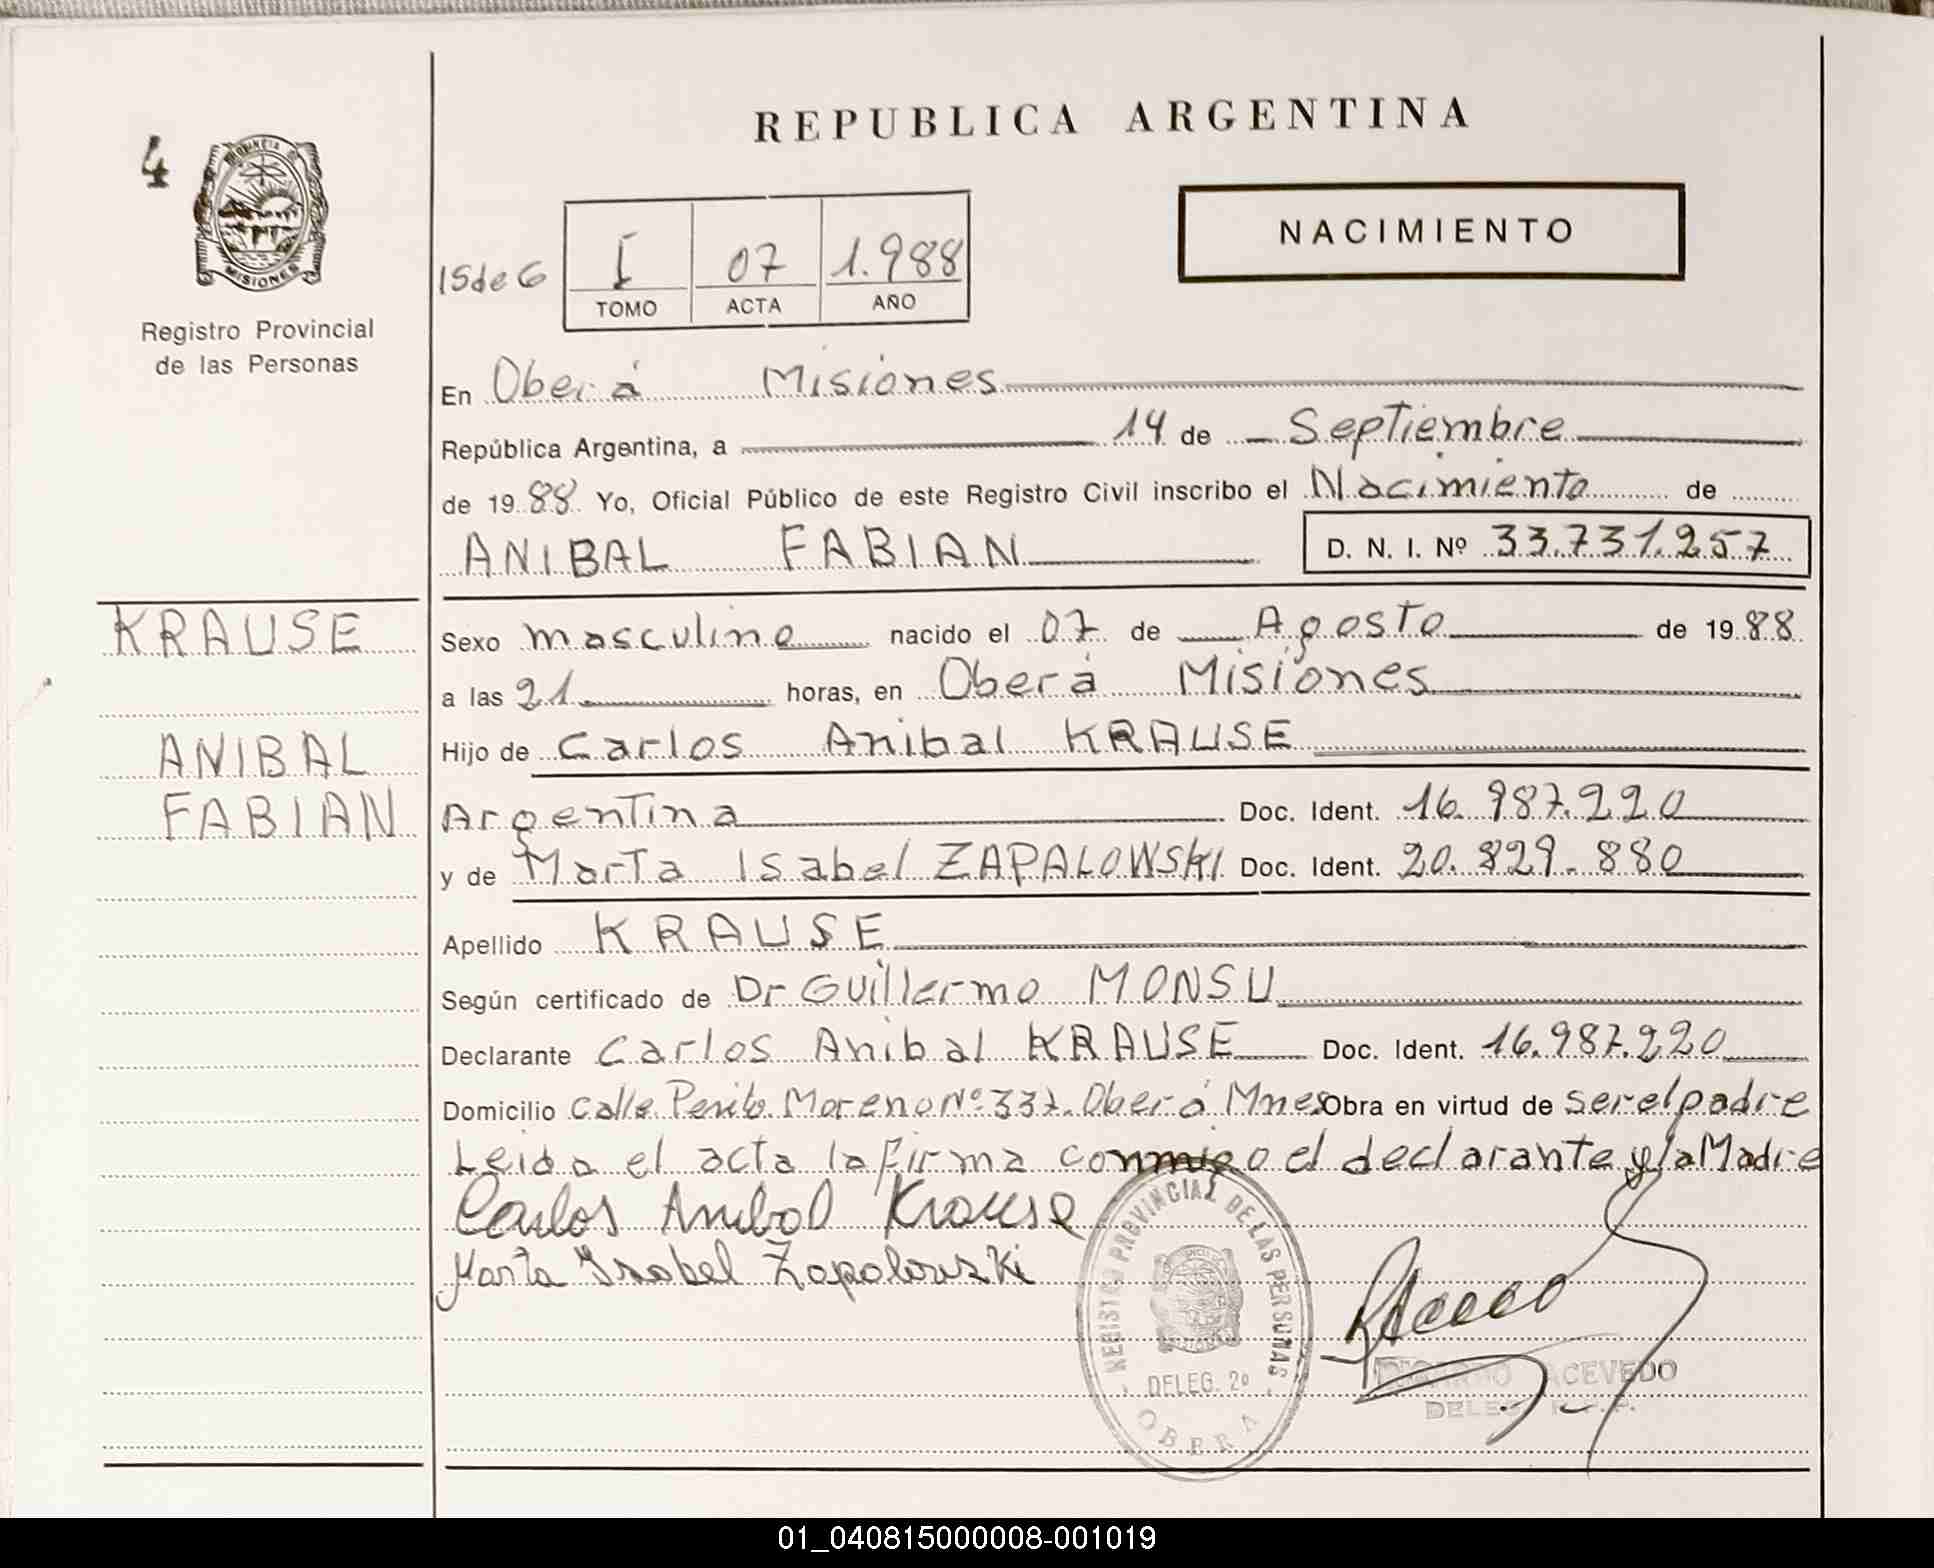 REPUBLICA ARGENTINA
4
PROVINCIA DE
MISIONES
Registro Provincial
de las Personas
NACIMIENTO
15 de G
I 07 1.988
TOMO ACTA AÑO
En Oberá Misiones
República Argentina, a 14 de Septiembre
de 1988 Yo, Oficial Público de este Registro Civil inscribo el Nacimiento de
ANIBAL FABIAN D. N. I. Nº 33.731.257
KRAUSE
ANIBAL
FABIAN
Sexo masculino nacido el 07 de Agosto de 1988
a las 21 horas, en Oberá Misiones
Hijo de Carlos Anibal KRAUSE
Argentina Doc. Ident. 16.987.220
y de Marta Isabel ZAPALOWSKI Doc. Ident. 20.829.880
Apellido KRAUSE
Según certificado de Dr Guillermo MONSU
Declarante Carlos Anibal KRAUSE Doc. Ident. 16.987.220
Domicilio Calle Perito Moreno Nº 337. Oberá Mnes Obra en virtud de ser el padre
Leida el acta la firma conmigo el declarante y la Madre
Carlos Anibal Krause
Marta Isabel Zapalowski
REGISTRO PROVINCIAL DE LAS PERSONAS
MISIONES
DELEG. 2º
OBERA
ACEVEDO
01_040815000008-001019